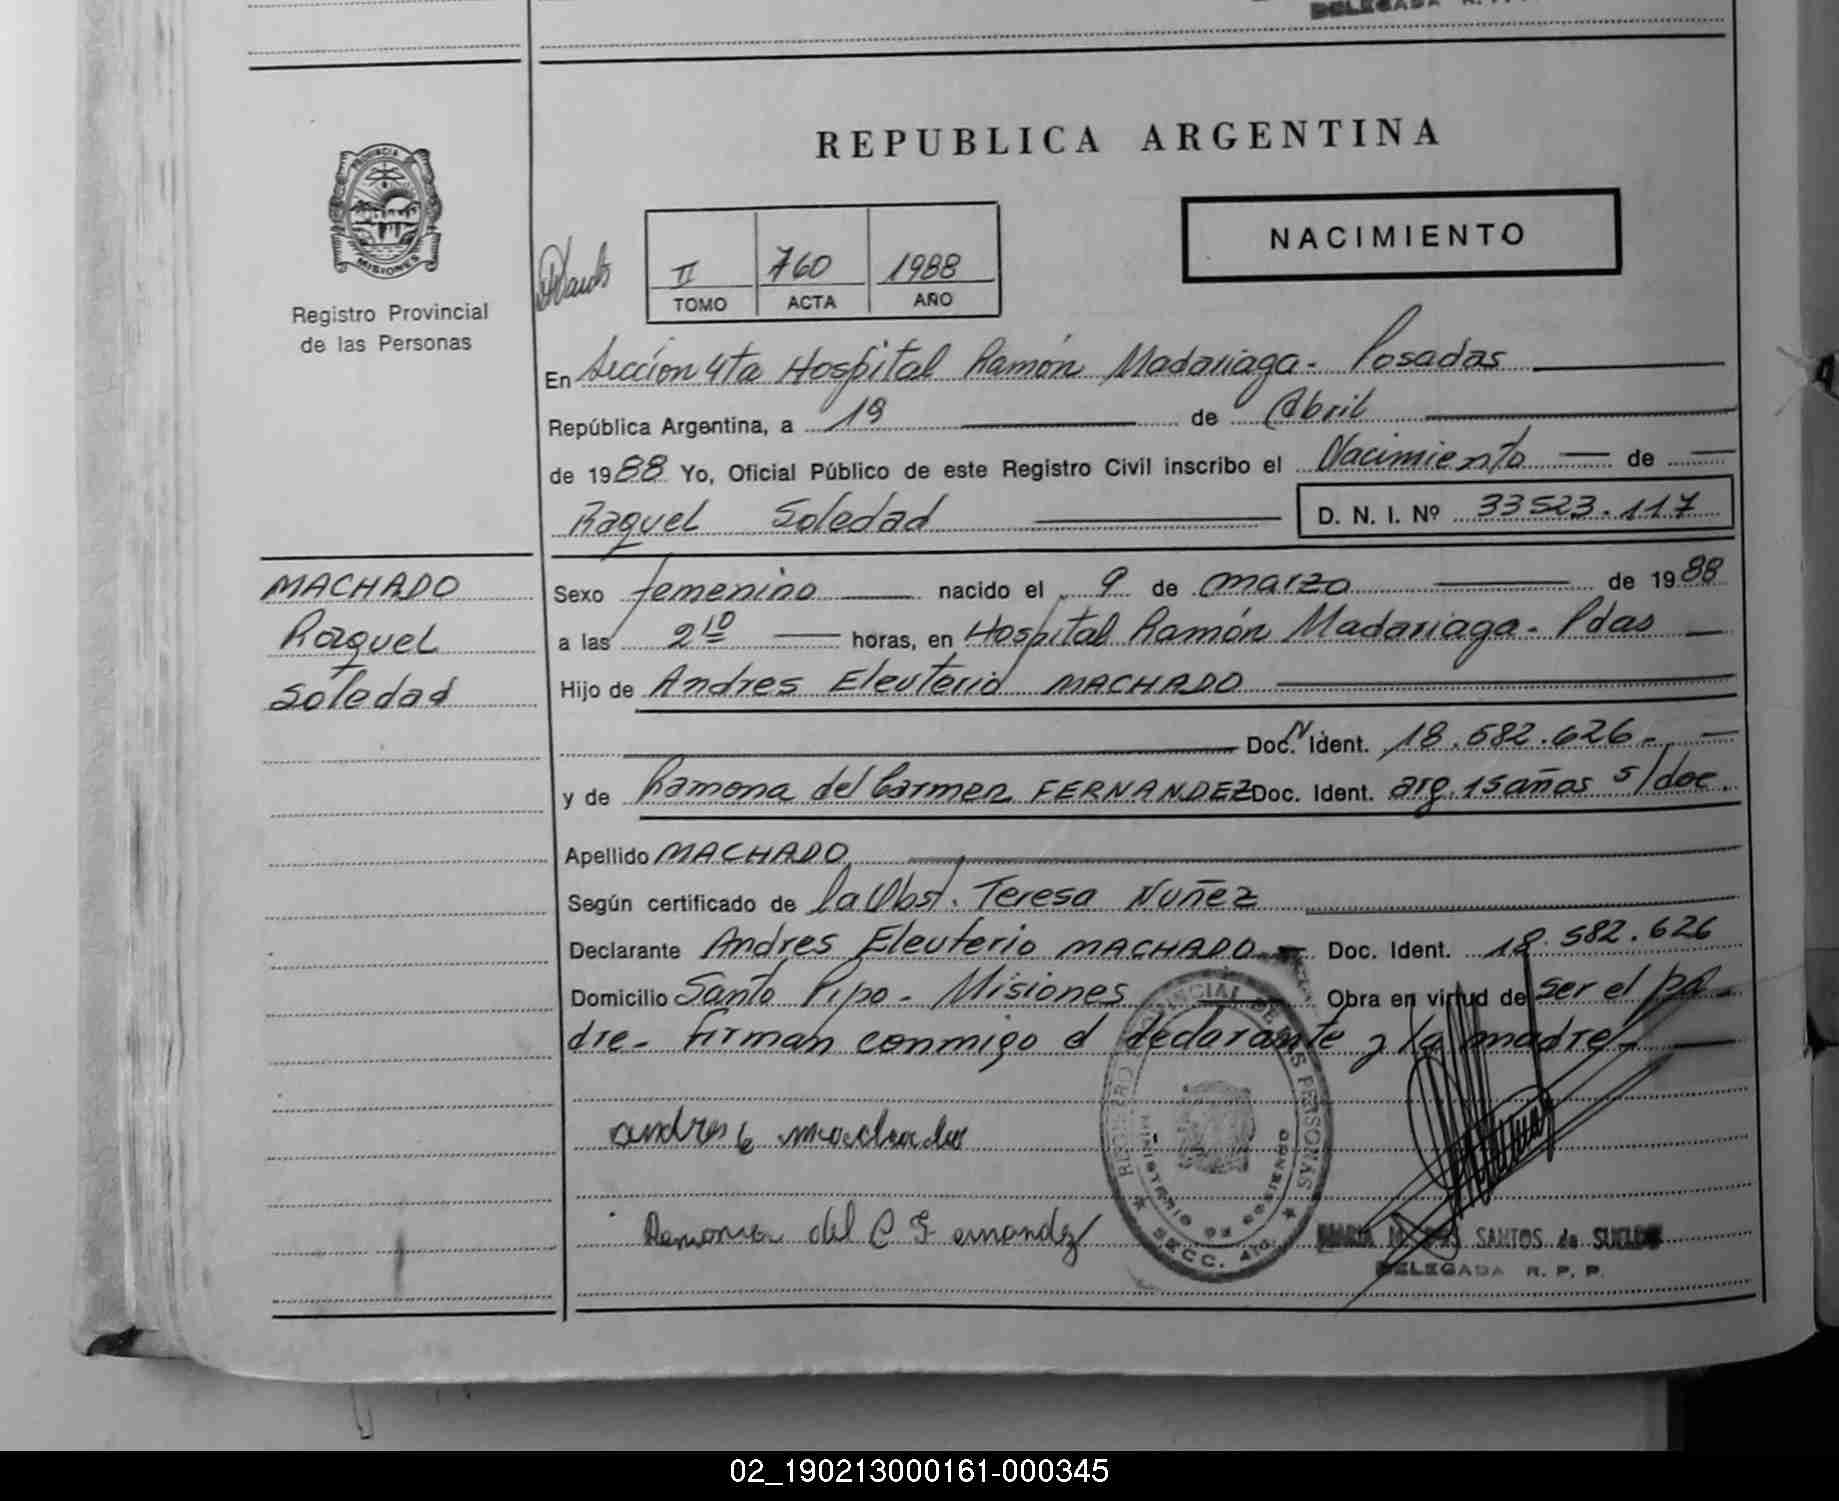 DELEGADA R. P. P.
REPUBLICA ARGENTINA
PROVINCIA DE
MISIONES
Registro Provincial
de las Personas
II 760 1988
TOMO ACTA AÑO
NACIMIENTO
En Sección 4ta Hospital Ramón Madariaga - Posadas
República Argentina, a 19 de Abril
de 1988 Yo, Oficial Público de este Registro Civil inscribo el Nacimiento de
Raquel Soledad D. N. I. Nº 33523.117
MACHADO
Raquel
Soledad
Sexo femenino nacido el 9 de marzo de 1988
a las 2 10 horas, en Hospital Ramón Madariaga - Pdas
Hijo de Andres Eleuterio MACHADO
Doc. N Ident. 18.582.626.-
y de Ramona del Carmen FERNANDEZ Doc. Ident. arg. 15 años s/doc.
Apellido MACHADO
Según certificado de la Obst. Teresa Nuñez
Declarante Andres Eleuterio MACHADO Doc. Ident. 18.582.626
Domicilio Santo Pipo - Misiones Obra en virtud de ser el pa-
dre- firman conmigo el declarante y la madre-
andres e machado
Ramona del C Fernandez
REGISTRO PROVINCIAL DE LAS PERSONAS
MINISTERIO DE GOBIERNO
SECC. 4ta
SANTOS de SUELDO
DELEGADA R. P. P.
02_190213000161-000345